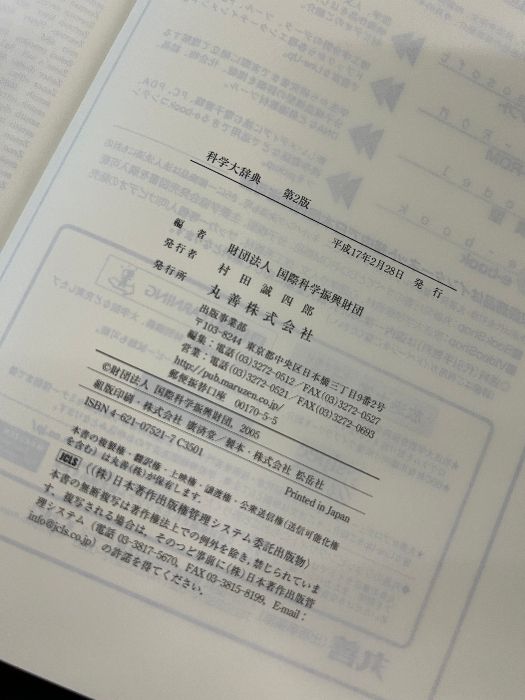 科学大辞典 第2版
平成17年2月28日 発行
編者 財団法人 国際科学振興財団
発行者 村田誠四郎
発行所 丸善株式会社
出版事業部
〒103-8244 東京都中央区日本橋三丁目9番2号
編集:電話(03)3272-0512/FAX(03)3272-0527
営業:電話(03)3272-0521/FAX(03)3272-0693
http://pub.maruzen.co.jp/
郵便振替口座 00170-5-5
©財団法人 国際科学振興財団, 2005
組版印刷・株式会社 廣済堂/製本・株式会社 松岳社
ISBN 4-621-07521-7 C3501
Printed in Japan
本書の複製権・翻訳権・上映権・譲渡権・公衆送信権(送信可能化権
を含む)は丸善(株)が保有します.
JCLS 〈(株)日本著作出版権管理システム委託出版物〉
本書の無断複写は著作権法上での例外を除き,禁じられていま
す.複写される場合は,そのつど事前に(株)日本著作出版権管
理システム(電話 03-3817-5670, FAX 03-3815-8199, E-mail:
info@jcls.co.jp)の許諾を得てください.